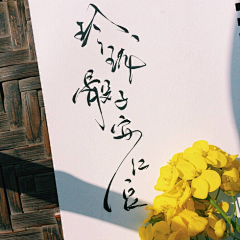 玲珑骰子安红豆